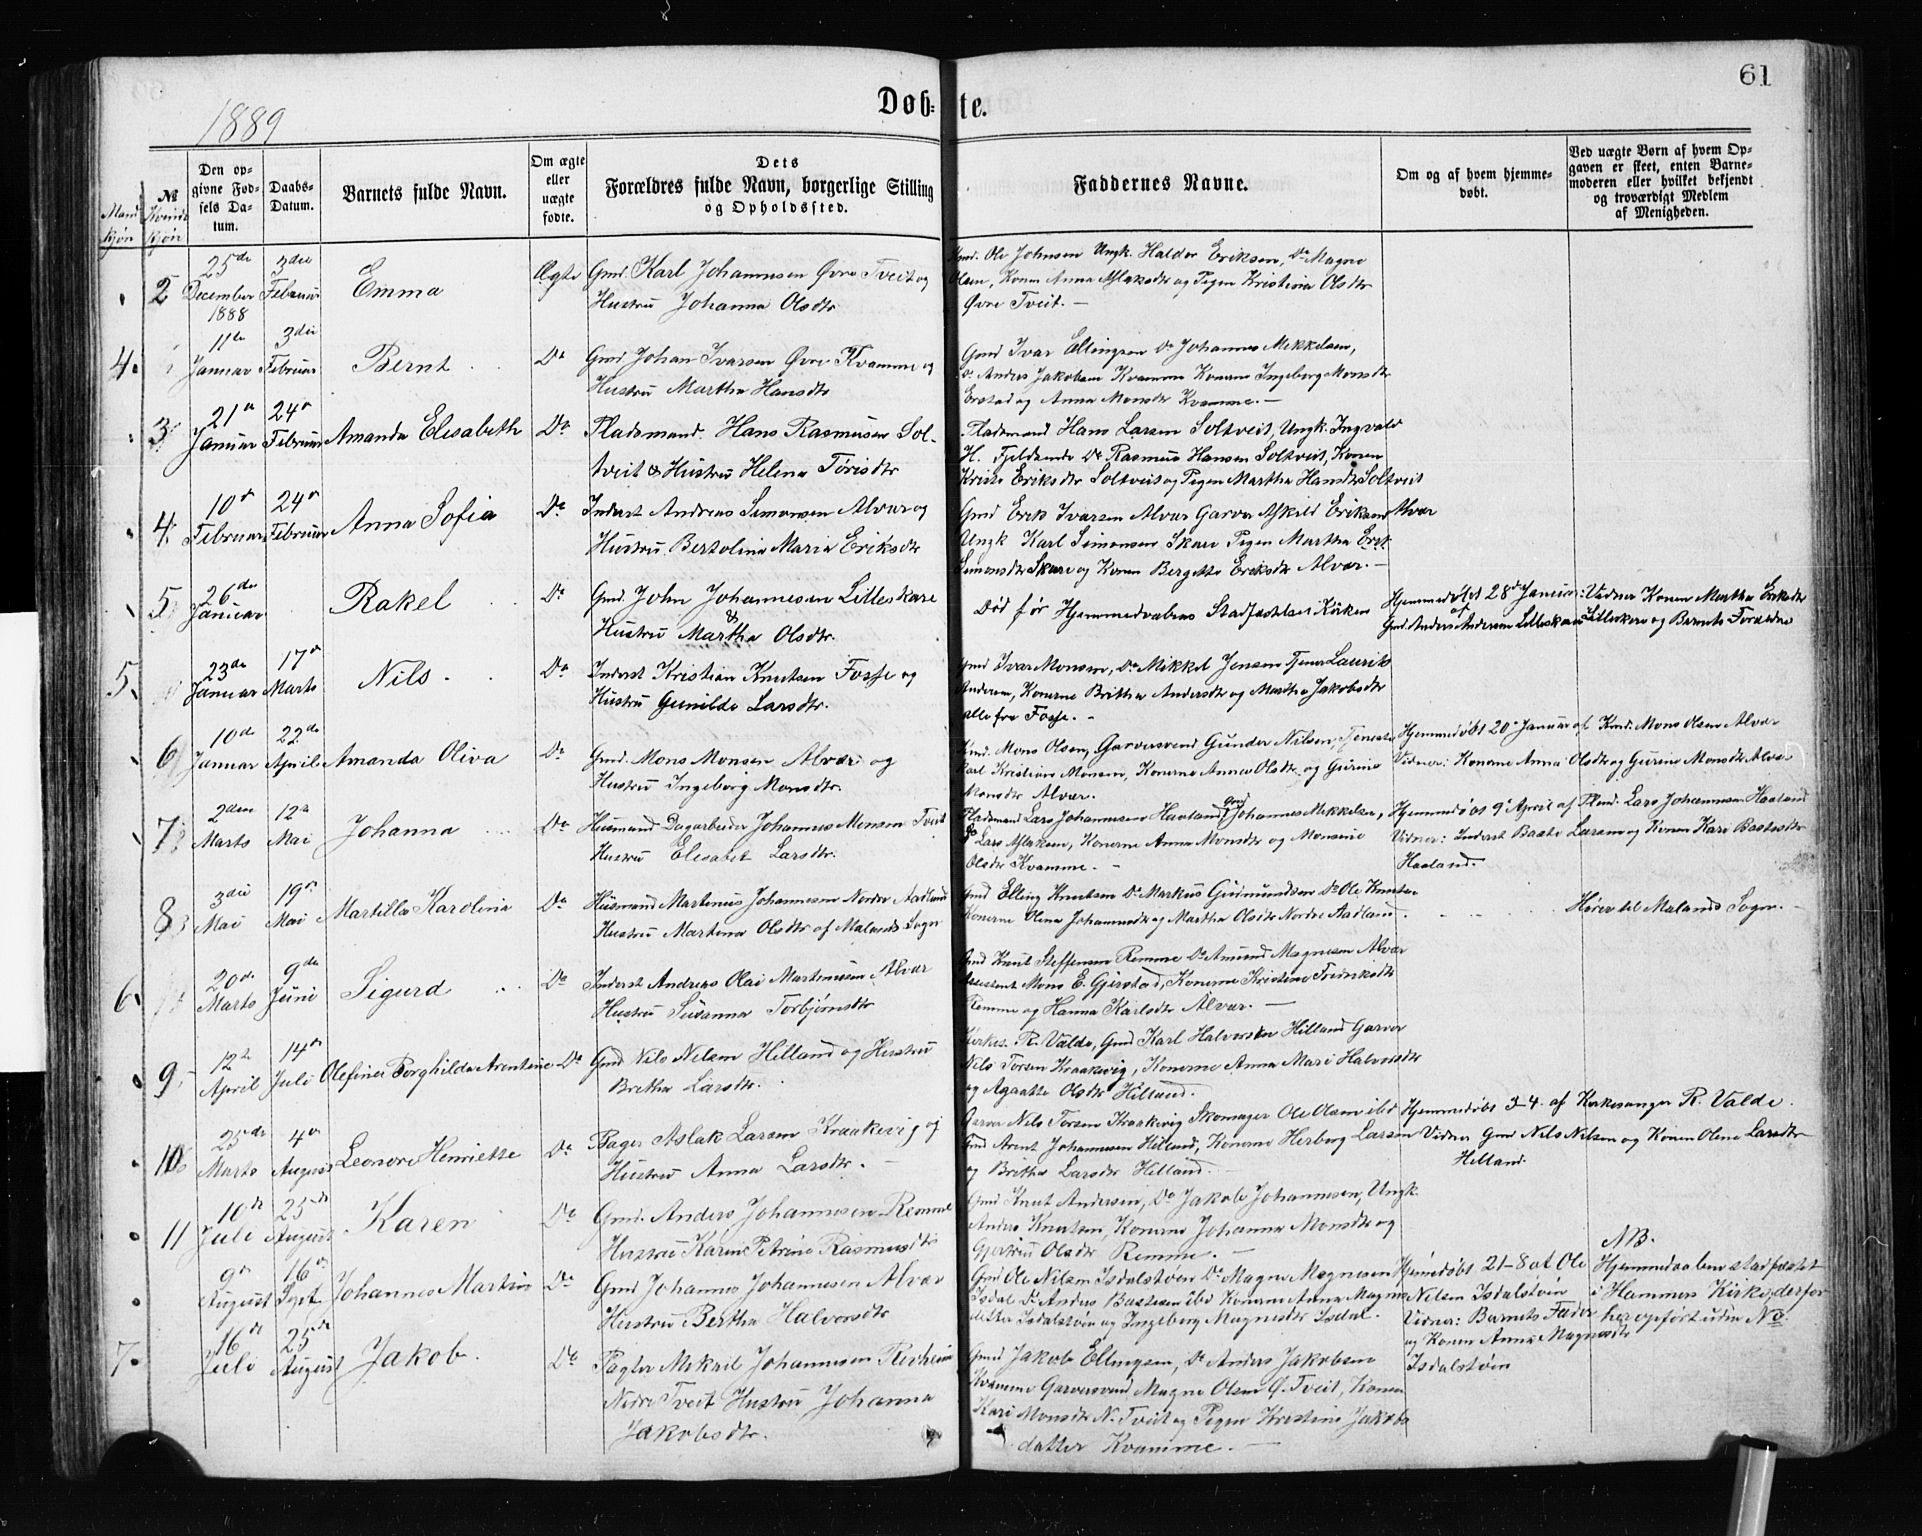 61
1889
Døb-te.
Mand
kjøn
№
Kvinde
kjøn
Den op-
givne Fød-
sels Da-
tum.
Daabs-
Datum.
Barnets fulde Navn.
Om ægte
eller
uægte
fødte.
Dets
Forældres fulde Navn, borgerlige Stilling
og Opholdssted.
Faddernes Navne.
Om og af hvem hjemme-
døbt.
Ved uægte Børn af hvem Op-
gaven er skeet, enten Barne-
moderen eller hvilket bekjendt
og troværdigt Medlem
af Menigheden.
2
25de
December
1888
3die
Februar
Emma
Ægte
Gmd. Karl Johannesen Øvre Tveit og
Hustru Johanna Olsdtr
Gmd. Ole Johnsen Ungk. Haldor Eriksen, Do Magne
Olsen, Konen Anna Aslaksdtr og Pigen Kristina Olsdtr
Øvre Tveit. —
4.
11te
Januar
3die
Februar
Bernt
Do
Gmd Johan Ivarsen Øvre Kvamme og
Hustru Martha Hansdtr
Gmd Ivar Ellingsen Do Johannes Mikkelsen,
Do Anders Jakobsen Kvamme Konerne Ingeborg Monsdtr
og Anna Monsdtr Kvamme. —
3
21de
Januar
24de
Februar
Amanda Elisabeth
Do
Pladsmand. Hans Rasmusen Sol-
tveit & Hustru Helena Tørisdtr
Pladsmand Hans Larsen Soltveit, Ungk. Ingvald
H. Do Rasmus Hansen Soltveit, Konen
Kristi Eriksdtr Soltveit og Pigen Martha Hansdtr Soltveit
4
10de
Februar
24de
Februar
Anna Sofia
Do
Inderst Andreas Simonsen Alver og
Hustru Bertolina Maria Eriksdtr
Gmd Erik Ivarsen Alver Garver Eriksen Alver
Ungk Karl Simonsen Skare Pigen Martha
Simonsdtr Skare og Konen Bergitte Eriksdtr Alver. —
5
26de
Januar
Rakel
Do
Gmd. John Johannesen Litleskare
& Hustru Martha Olsdtr.
Død før Hjemmedaabens Stadfæstelse i Kirken
Hjemmedøbt 28de Januar
af Gmd. Anders Andersen Litleskare
Vidner Konen Martha Eriksdtr
Litleskare og Barnets Forældre
5.
23de
Januar
17de
Marts
Nils
Do
Inderst Kristian Knutsen Fosse og
Hustru Gunilde Larsdtr.
Gmd Ivar Monsen, Do Mikkel Jensen Tjener Laurits
Andersen, Konerne Britha Andersdtr og Martha Jakobsdtr
alle fra Fosse. -
6
10de
Januar
22de
April
Amanda Oliva
Do
Gmd. Mons Monsen Alver og
Hustru Ingeborg Monsdtr.
Kmd. Mons Olsen, Garversvend Gunder Nilsen, Tjeneste
karl Kristian Monsen, Konerne Anna Olsdtr og Gurine
Monsdtr Alver.
Hjemmedøbt 20de Januar af Kmd. Mons Olsen Alver
Vidner: Konerne Anna Olsdtr og Gurine Monsdtr Alver
7
2den
Marts
12te
Mai
Johanna
Do
Husmand Dagarbeider Johannes Monsen Tveit
Hustru Elisabet Larsdtr.
Pladsmand Lars Johannesen Haaland, Gmd Johannes Mikkelsen,
Do Lars Aslaksen, Konerne Anna Monsdtr og Monsine
Olsdtr Kvamme. —
Hjemmedøbt 9de April af Plmd. Lars Johannesen Haaland
Vidner: Inderst Baste Larsen og Konen Kari Bastesdtr
Haaland.
8
3die
Mai
19de
Mai
Martilla Karolina
Do
Husmand Martinus Johannesen Nordre Aadland
Hustru Martina Olsdtr af Mælands Sogn
Gmd Elling Knutsen Do Markus Gudmundsen Do Ole Knutsen
Konerne Olina Johannesdtr og Martha Olsdtr Nordre Aadland.
Hører til Mælands Sogn. -
6.
20de
Marts
9de
Juni
Sigurd
Do
Inderst Andreas Olai Martinusen Alver
Hustru Susanna Torbjørnsdtr
Gmd Knut Steffensen Remme Do Amund Magnesen Alver
Assistent Mons E. Gjerstad, Konerne Kristine
Remme og Hanna Karlsdtr Alver. —
9
12te
April
14de
Juli
Olefine Borghilda Arentine
Do
Gmd Nils Nilsen Hilland og Hustru
Britha Larsdtr.
Kirkes. R. Valde, Gmd Karl Halvorsen Hilland Garver
Nils Torsen Kraakevig, Konerne Anna Mari Halvorsdtr
og Agaathe Olsdtr Hilland.
10
25de
Marts
4de
August
Leonore Henriette
Do
Bager Aslak Larsen Kraakevig og
Hustru Anna Larsdtr. —
Garver Nils Torsen Kraakevig Skomager Ole Olsen ibd
Gmd Arent Johannesen Hilland, Konerne Herborg Larsen
og Britha Larsdtr Hilland.
Hjemmedøbt 3-4. af Kirkesanger R. Valde.
Vidner Gmd Nils Nilsen og Konen Olena Larsdtr
Hilland.
11
10de
Juli
25de
August
Karen
Do
Gmd. Anders Johannesen Remme
Hustru Karine Petrine Rasmusdtr
Gmd Knut Andersen, Do Jakob Johannesen, Ungk.
Anders Knutsen, Konerne Johanna Monsdtr og
Gjertrud Olsdtr Remme. —
9de
August
16de
Sept.
Johannes Martin
Do
Gmd Johannes Johannesen Alver
Hustru Bertha Halvorsdtr
Gmd Ole Nilsen Isdalstøen Do Magne Magnesen
Isdal Do Anders Bastesen ibd Konerne Anna Magnes
datter Isdalstøen og Ingeborg Magnesdtr Isdal.
Hjemmedøbt 21-8 at Ole
Nilsen Isdalstøen
Vidner: Barnets Fader
og Konen Anna Magnesdtr
Isdalstøen
NB.
Hjemmedaaben stadfæstet
i Hammers Kirke, derfor
her opført uden No.
7.
16de
Juli
25de
August
Jakob.
Do
Pagter Mikael Johannesen Revheim
Nedre Tveit Hustru Johanna
Jakobsdtr.
Gmd Jakob Ellingsen, Do Anders Jakobsen
Kvamme Garversvend Magne Olsen Ø. Tveit, Konen
Kari Monsdtr N. Tveit og Pigen Kristine Jakobs
datter Kvamme. —